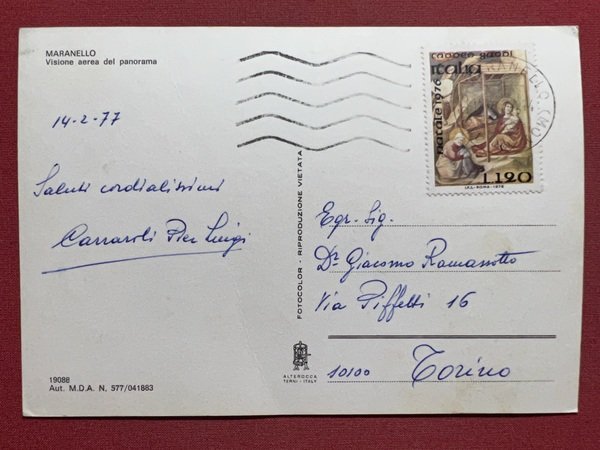 MARANELLO
Visione aerea del panorama
14-2-77
Saluti cordialissimi
Carraroli Pier Luigi
19088
Aut. M.D.A. N. 577/041883
FOTOCOLOR - RIPRODUZIONE VIETATA
ALTEROCCA
TERNI - ITALY
taddeo gaddi
italia
natale 1976
L.120
I.P.S.-ROMA-1976
MARANELLO (MO)
Egr. Sig.
Dr. Giacomo Romassotto
Via Piffetti 16
10100 Torino